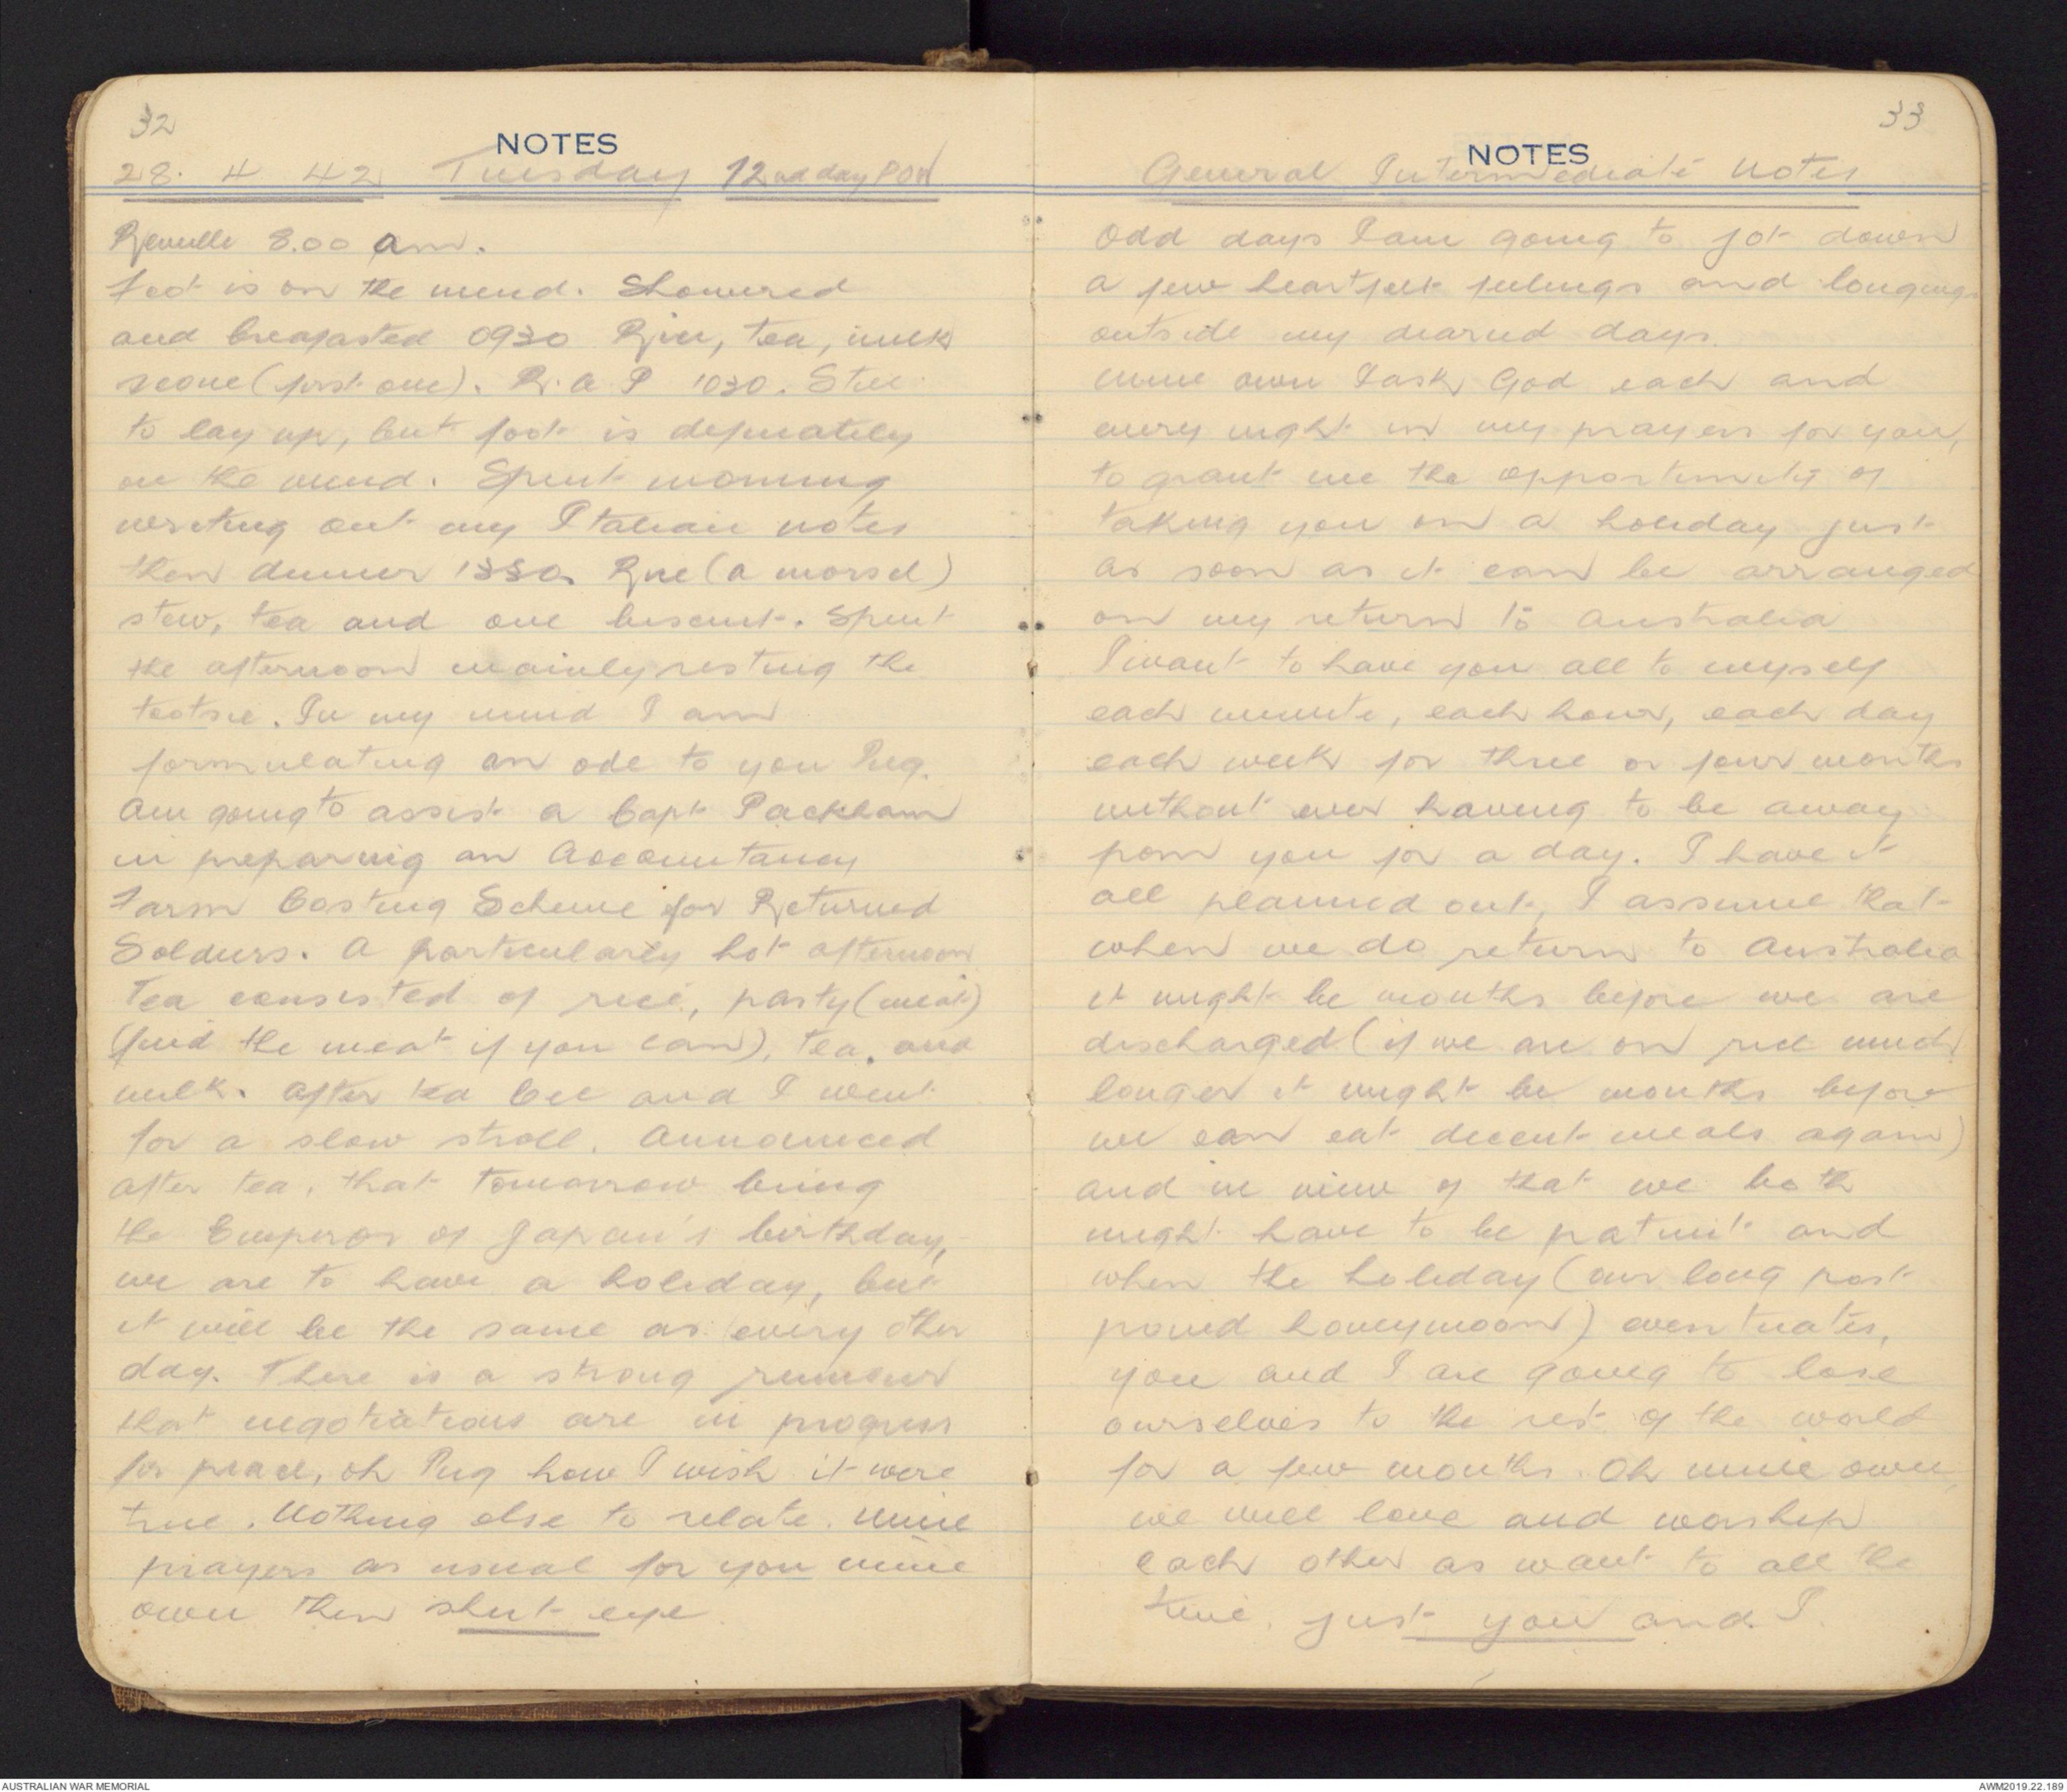 32
NOTES
28. 4 42 Tuesday 72nd day POW
Reveille 8.00 am.
foot is on the mend. Showered
and breafasted 0930 Rice, tea, milk
scone (first one). R.A.P 1030. Still
to lay up, but foot is definately
on the mend. Spent morning
writing out my Italian notes
then dinner 1330. Rice (a morsel)
stew, tea and one biscuit. Spent
the afternoon mainly resting the
tootsie. In my mind I am
formulating an ode to you Peg.
Am going to assist a Capt Packham
in preparing an Accountancy
Farm Costing Scheme for Returned
Soldiers. A particularly hot afternoon
Tea consisted of rice, pasty (meat)
(find the meat if you can), tea, and
milk. After tea Cec and I went
for a slow stroll. Announced
after tea, that tomorrow being
the Emperor of Japan's birthday,
we are to have a holiday, but
it will be the same as every other
day. There is a strong rumour
that negotiations are in progress
for peace, oh Peg how I wish it were
true. Nothing else to relate. Mine
prayers as usual for you mine
own then shut-eye.
33
NOTES
General Intermediate Notes
Odd days I am going to jot down
a few heartfelt feelings and longings
outside my diaried days.
Mine own I ask God each and
every night in my prayers for you,
to grant me the opportunity of
taking you on a holiday just
as soon as it can be arranged
on my return to Australia
I want to have you all to myself
each minute, each hour, each day
each week for three or four months
without ever having to be away
from you for a day. I have it
all planned out, I assume that
when we do return to Australia
it might be months before we are
discharged (if we are on rice much
longer it might be months before
we can eat decent meals again)
and in view of that we both
might have to be patient and
when the holiday (our long post
poned honeymoon) eventuates,
you and I are going to lose
ourselves to the rest of the world
for a few months. Oh mine own,
we will love and worship
each other as want to all the
time, just you and I.
AUSTRALIAN WAR MEMORIAL
AWM2019.22.189